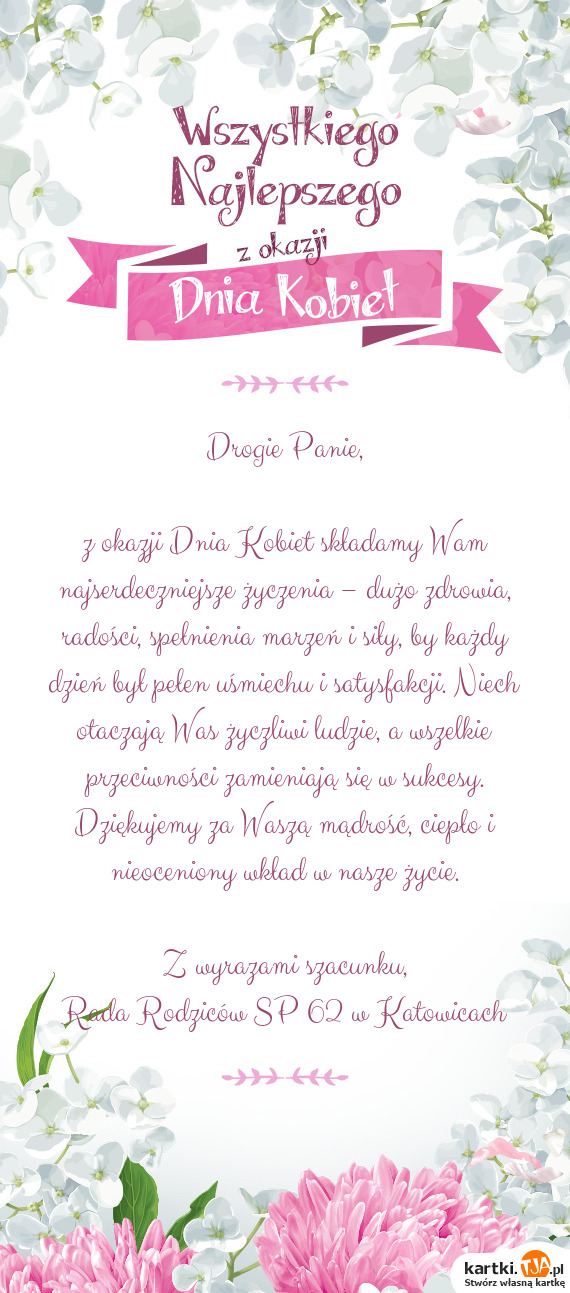 Wszystkiego
Najlepszego
z okazji
Dnia Kobiet
Drogie Panie,
z okazji Dnia Kobiet składamy Wam
najserdeczniejsze życzenia – dużo zdrowia,
radości, spełnienia marzeń i siły, by każdy
dzień był pełen uśmiechu i satysfakcji. Niech
otaczają Was życzliwi ludzie, a wszelkie
przeciwności zamieniają się w sukcesy.
Dziękujemy za Waszą mądrość, ciepło i
nieoceniony wkład w nasze życie.
Z wyrazami szacunku,
Rada Rodziców SP 62 w Katowicach
kartki.TJA.pl
Stwórz własną kartkę